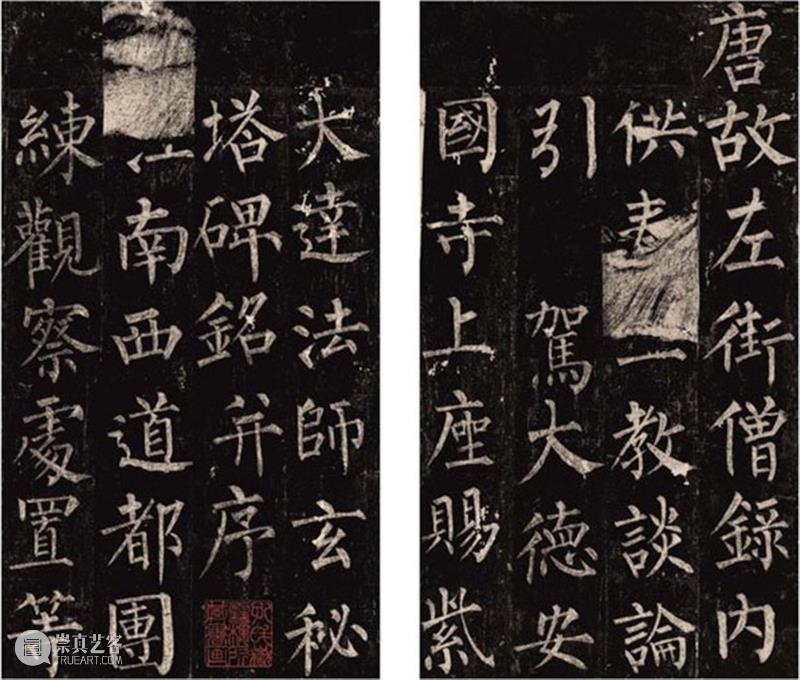 唐故左街僧錄內
供教談論
引 駕大德安
國寺上座賜紫
大達法師玄秘
塔碑銘并序
南西道都團
練觀察處置等
崇真艺客
TRUEART.COM